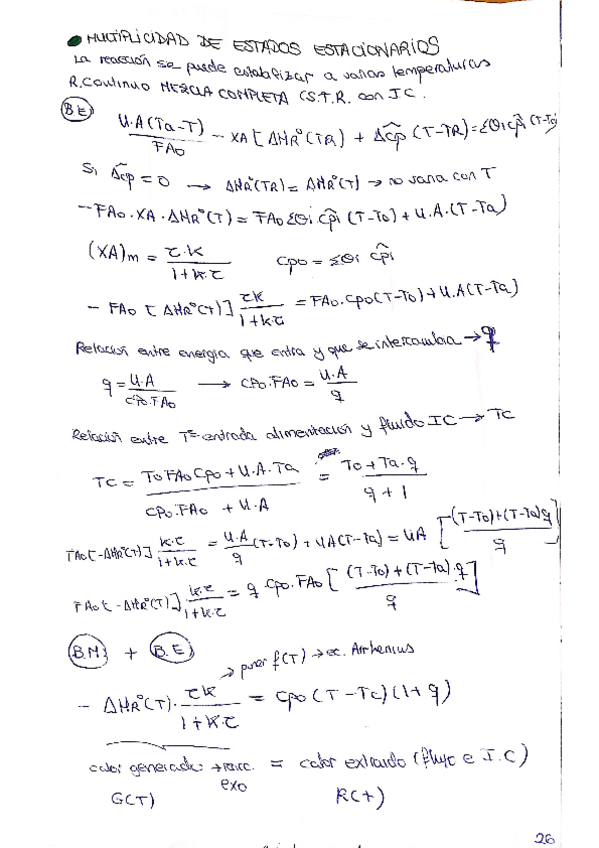 MULTIPLICIDAD DE ESTADOS ESTACIONARIOS
La reacción se puede estabilizar a varias temperaturas
R. Continuo MEZCLA COMPLETA CS.T.R. con I.C.
B.E
U.A(Ta-T)/FAo - XA[ΔHR°(TR) + Δĉp (T-TR)] = ΣΘi ĉpi (T-To)
Si Δĉp = 0 → ΔHR°(TR) = ΔHR°(T) → no varia con T
- FAo · XA · ΔHR°(T) = FAo ΣΘi ĉpi (T-To) + U.A.(T-Ta)
(XA)m = τ·k/1+k·τ Cpo = ΣΘi ĉpi
- FAo [ΔHR°(T)] τk/1+k·τ = FAo·Cpo(T-To)+U.A(T-Ta)
Relación entre energía que entra y que se intercambia → q
q = U.A/Cpo·FAo → Cpo·FAo = U.A/q
Relación entre Tª entrada alimentación y fluido IC → Tc
Tc = To FAo Cpo + U.A. Ta/Cpo·FAo + U.A = To + Ta·q/q+1
FAo[-ΔHR°(T)] k·τ/1+k·τ = U.A/q (T-To) + UA(T-Ta) = UA [(T-To)+(T-Ta)q/q]
FAo[-ΔHR°(T)] k·τ/1+k·τ = q Cpo·FAo [(T-To)+(T-Ta)·q/q]
B.M + B.E → poner f(T) → ec. Arrhenius
- ΔHR°(T) · τk/1+k·τ = Cpo (T-Tc)(1+q)
calor generado → reacc. exo = calor extraído (flujo e I.C)
G(T) R(t)
26